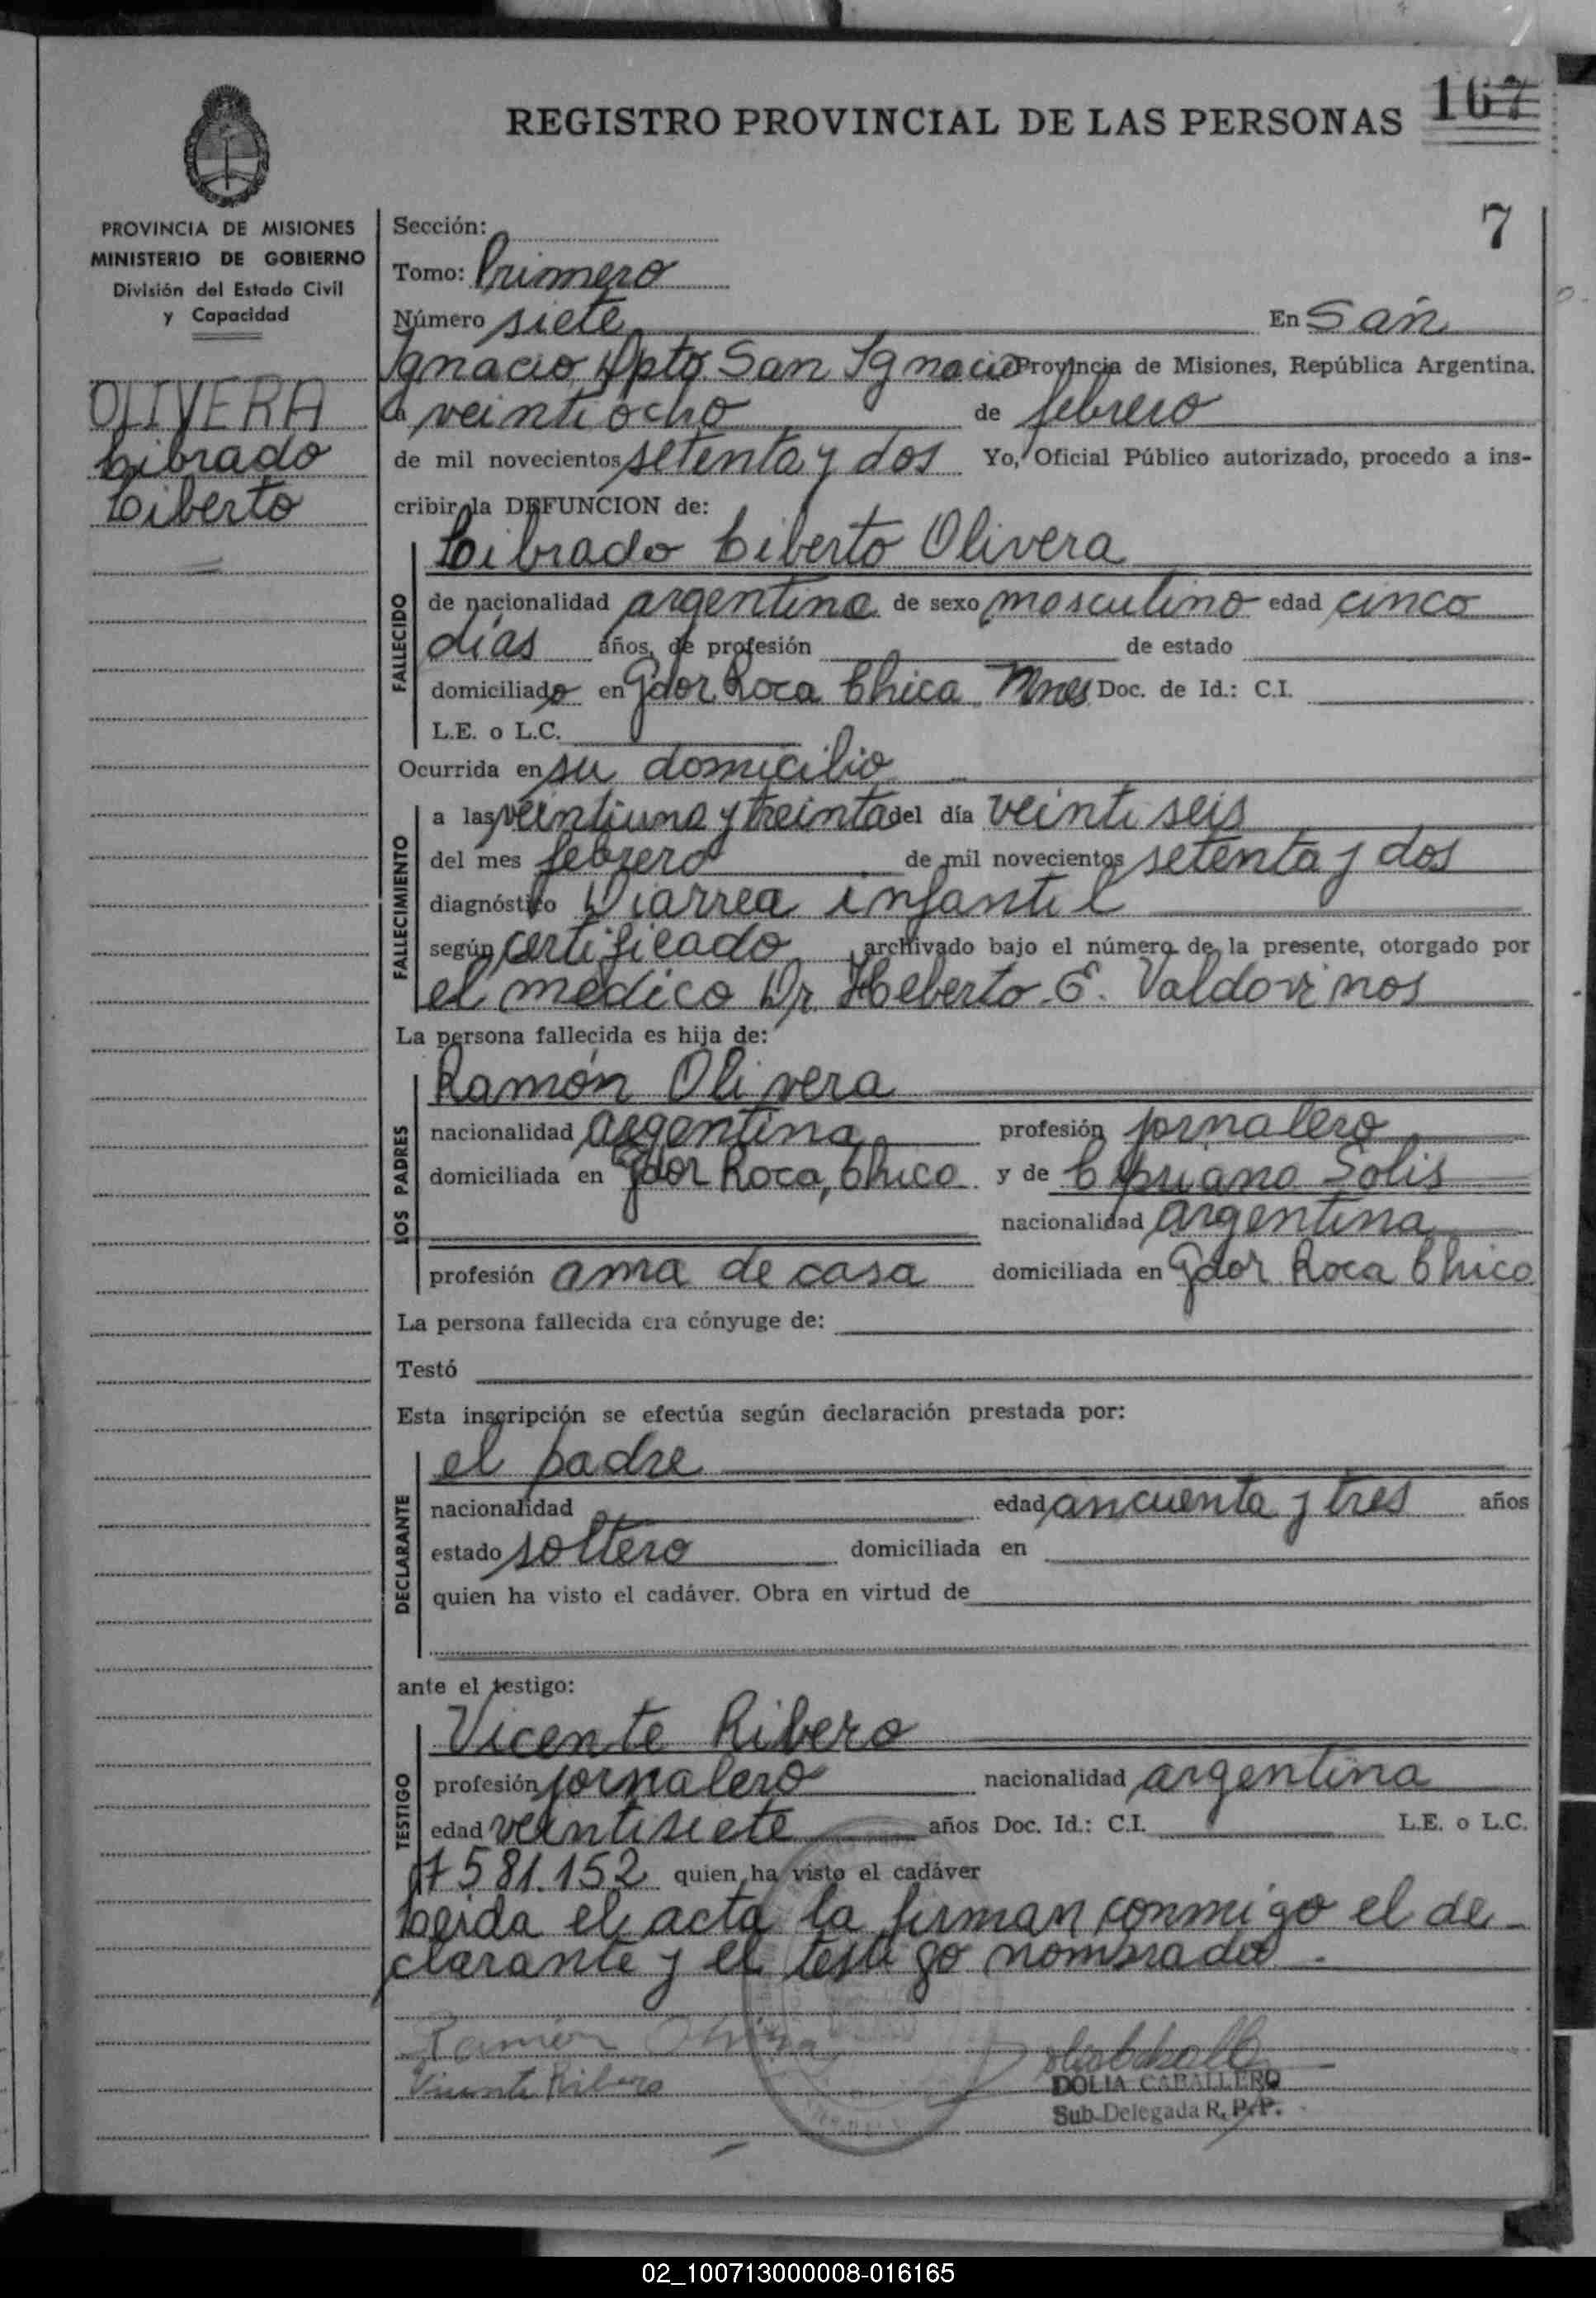 REGISTRO PROVINCIAL DE LAS PERSONAS 167
7
PROVINCIA DE MISIONES
MINISTERIO DE GOBIERNO
División del Estado Civil
y Capacidad
OLIVERA
Librado
Liberto
Sección:
Tomo: Primero
Número siete En San
Ignacio, Dpto. San Ignacio Provincia de Misiones, República Argentina.
a veintiocho de febrero
de mil novecientos setenta y dos Yo, Oficial Público autorizado, procedo a ins-
cribir la DEFUNCION de:
Librado Liberto Olivera
FALLECIDO
de nacionalidad argentina de sexo masculino edad cinco
días años, de profesión de estado
domiciliado en Gdor Roca Chica, Mnes Doc. de Id.: C.I.
L.E. o L.C.
Ocurrida en su domicilio
FALLECIMIENTO
a las veintiuna y treinta del día veintiseis
del mes febrero de mil novecientos setenta y dos
diagnóstico Diarrea infantil
según certificado archivado bajo el número de la presente, otorgado por
el médico Dr. Heberto E. Valdovinos
La persona fallecida es hija de:
LOS PADRES
Ramón Olivera
nacionalidad argentina profesión jornalero
domiciliada en Gdor Roca, Chico y de Cipriana Solis
nacionalidad argentina
profesión ama de casa domiciliada en Gdor Roca Chico
La persona fallecida era cónyuge de:
Testó
Esta inscripción se efectúa según declaración prestada por:
DECLARANTE
el padre
nacionalidad edad cincuenta y tres años
estado soltero domiciliada en
quien ha visto el cadáver. Obra en virtud de
ante el testigo:
TESTIGO
Vicente Ribero
profesión jornalero nacionalidad argentina
edad veintisiete años Doc. Id.: C.I. L.E. o L.C.
7581.152 quien ha visto el cadáver
Leída el acta la firman conmigo el de-
clarante y el testigo nombrado.
Ramón Olivera
Vicente Ribero
DOLIA CABALLERO
Sub-Delegada R. P. P.
02_100713000008-016165